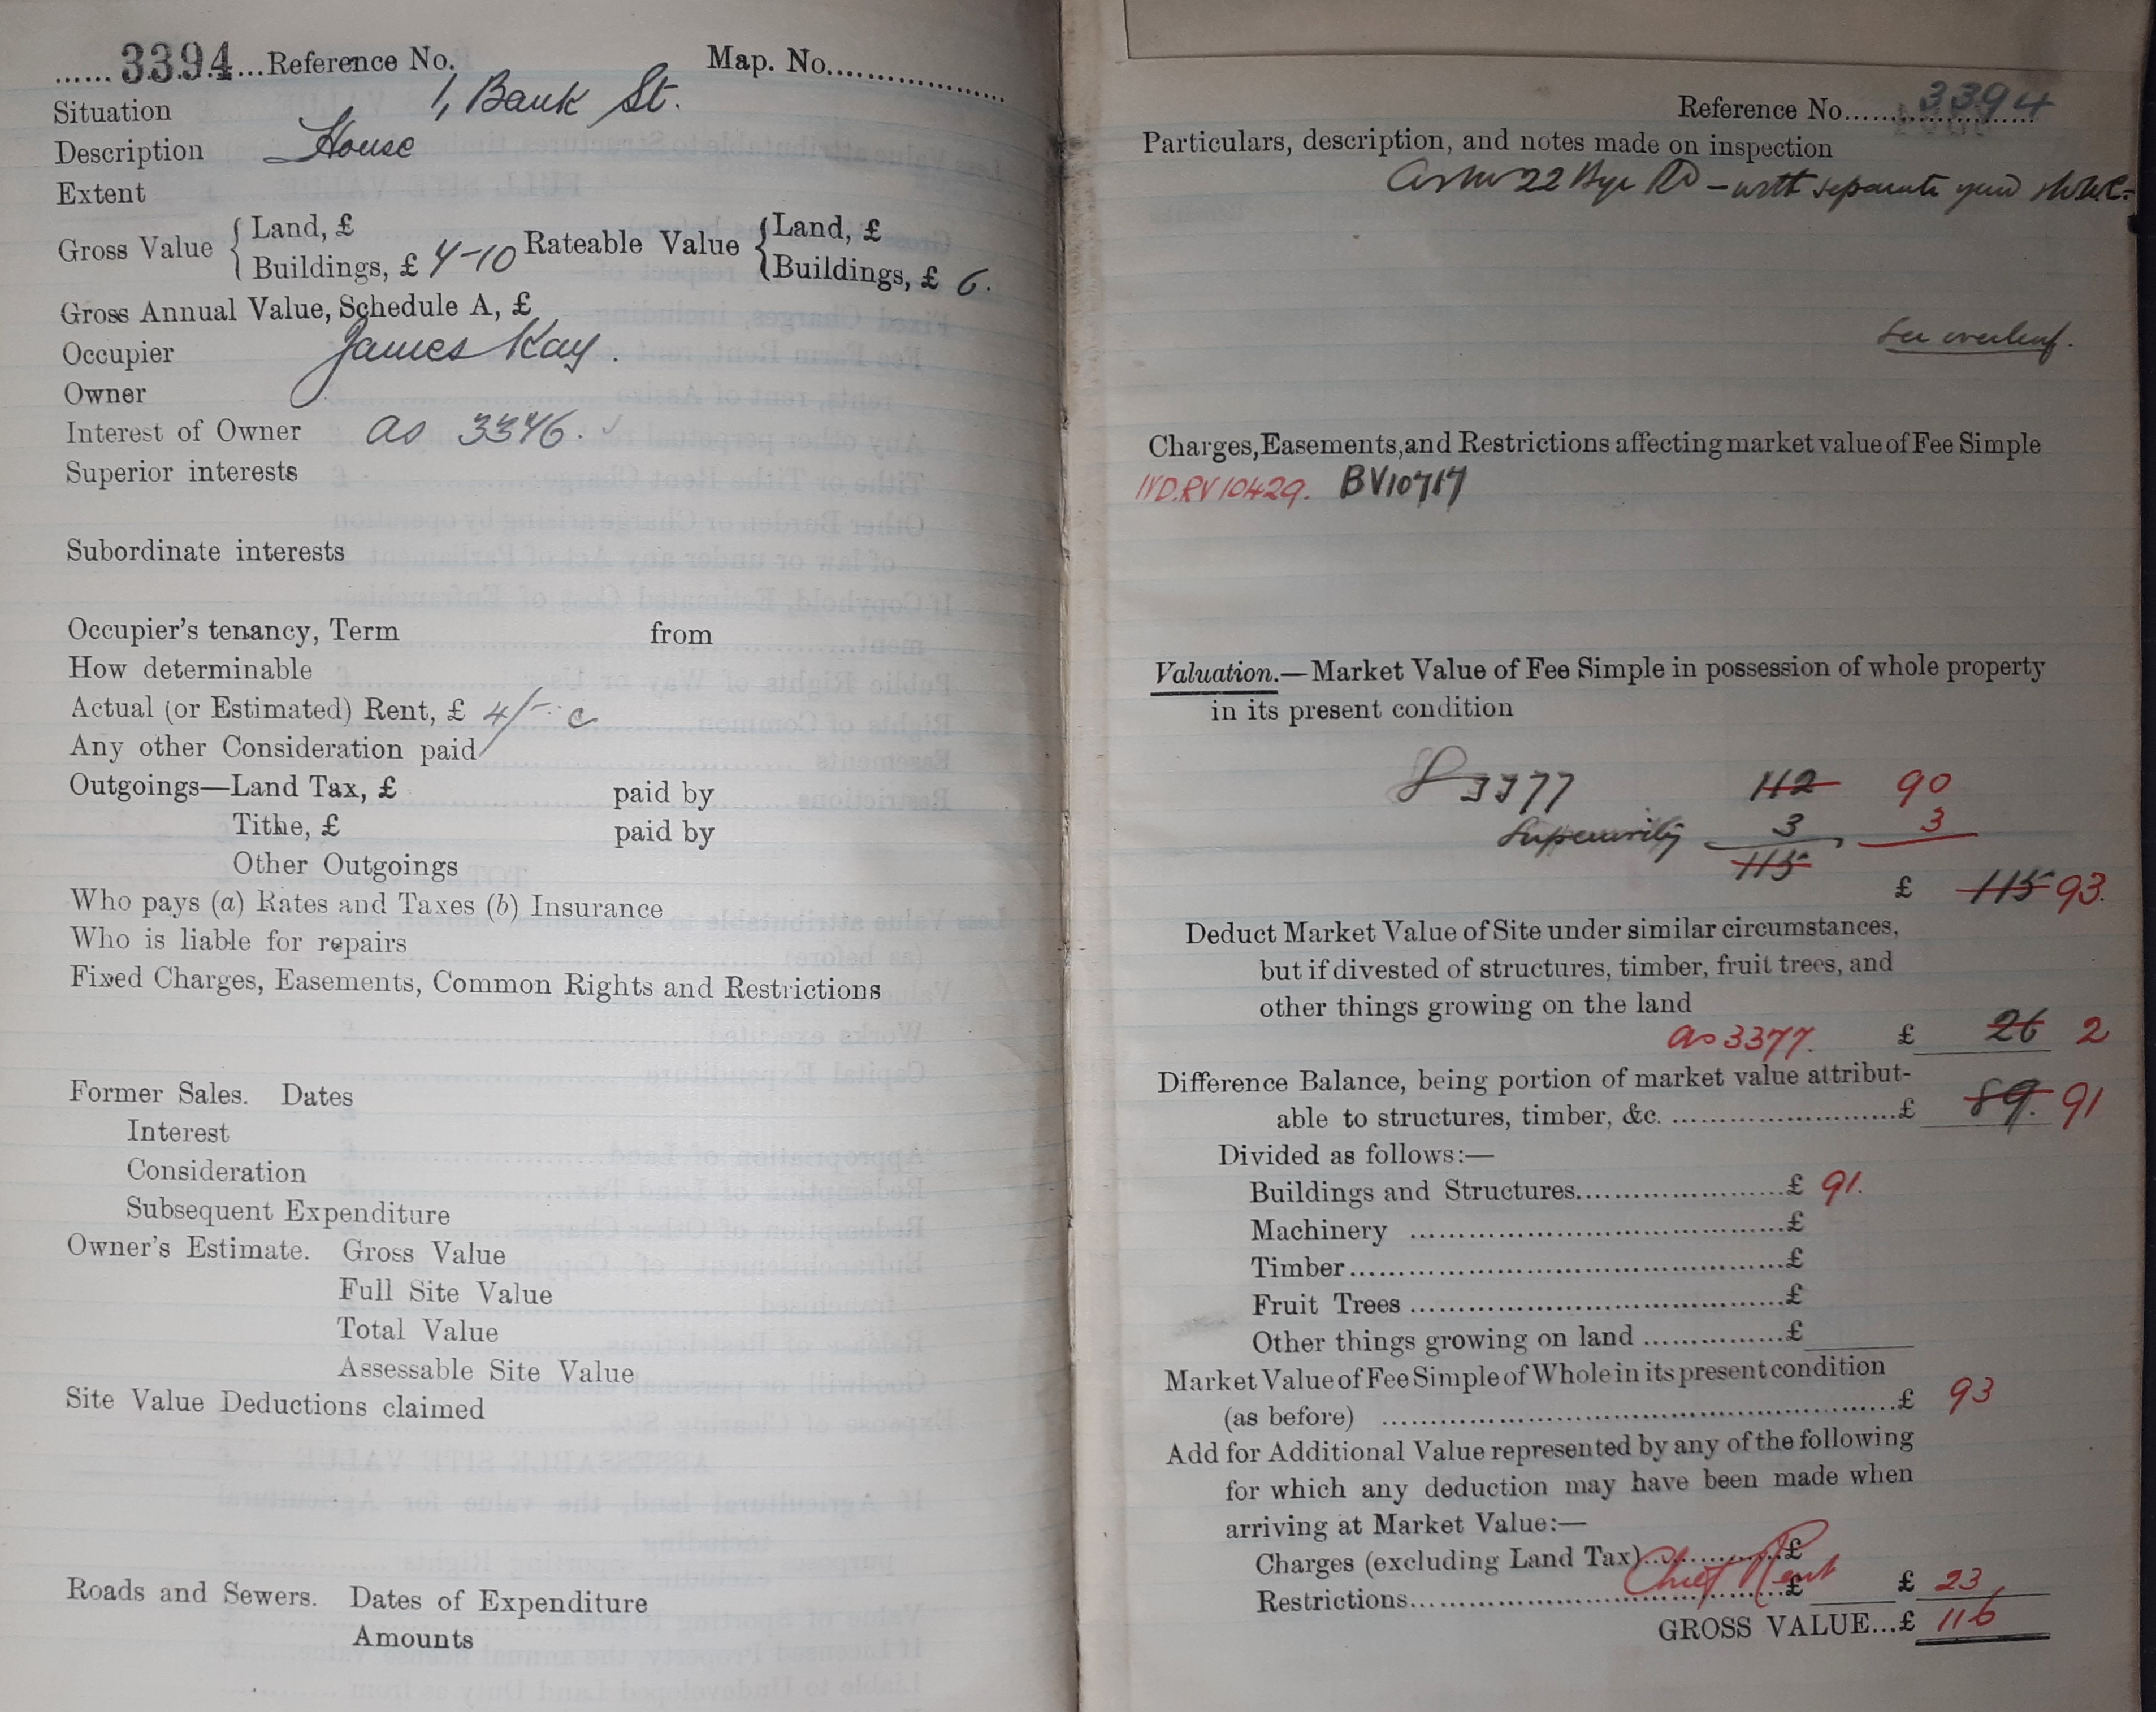 ......3394...Reference No. Map. No....................
Situation 1, Bank St.
Description House
Extent
Gross Value { Land, £ Rateable Value { Land, £
Buildings, £ 4-10 Buildings, £ 6.
Gross Annual Value, Schedule A, £
Occupier James Kay.
Owner
Interest of Owner as 3346.
Superior interests
Subordinate interests
Occupier's tenancy, Term from
How determinable
Actual (or Estimated) Rent, £ 4/- c
Any other Consideration paid
Outgoings—Land Tax, £ paid by
Tithe, £ paid by
Other Outgoings
Who pays (a) Rates and Taxes (b) Insurance
Who is liable for repairs
Fixed Charges, Easements, Common Rights and Restrictions
Former Sales. Dates
Interest
Consideration
Subsequent Expenditure
Owner's Estimate. Gross Value
Full Site Value
Total Value
Assessable Site Value
Site Value Deductions claimed
Roads and Sewers. Dates of Expenditure
Amounts
Reference No. 3394
Particulars, description, and notes made on inspection
22 Rd - with separate yard
See overleaf.
Charges, Easements, and Restrictions affecting market value of Fee Simple
RV 10429. BV10717
Valuation.—Market Value of Fee Simple in possession of whole property
in its present condition
3377 112 90
Superiority 3 3
115
£ 115 93.
Deduct Market Value of Site under similar circumstances,
but if divested of structures, timber, fruit trees, and
other things growing on the land
as 3377. £ 26 2
Difference Balance, being portion of market value attribut-
able to structures, timber, &c. ........................£ 89. 91
Divided as follows:—
Buildings and Structures......................£ 91.
Machinery ......................................£
Timber............................................£
Fruit Trees ......................................£
Other things growing on land ...............£
Market Value of Fee Simple of Whole in its present condition
(as before) ......................................................£ 93
Add for Additional Value represented by any of the following
for which any deduction may have been made when
arriving at Market Value:—
Charges (excluding Land Tax)...............£
Restrictions......................................£ Chief Rent £ 23
GROSS VALUE...£ 116